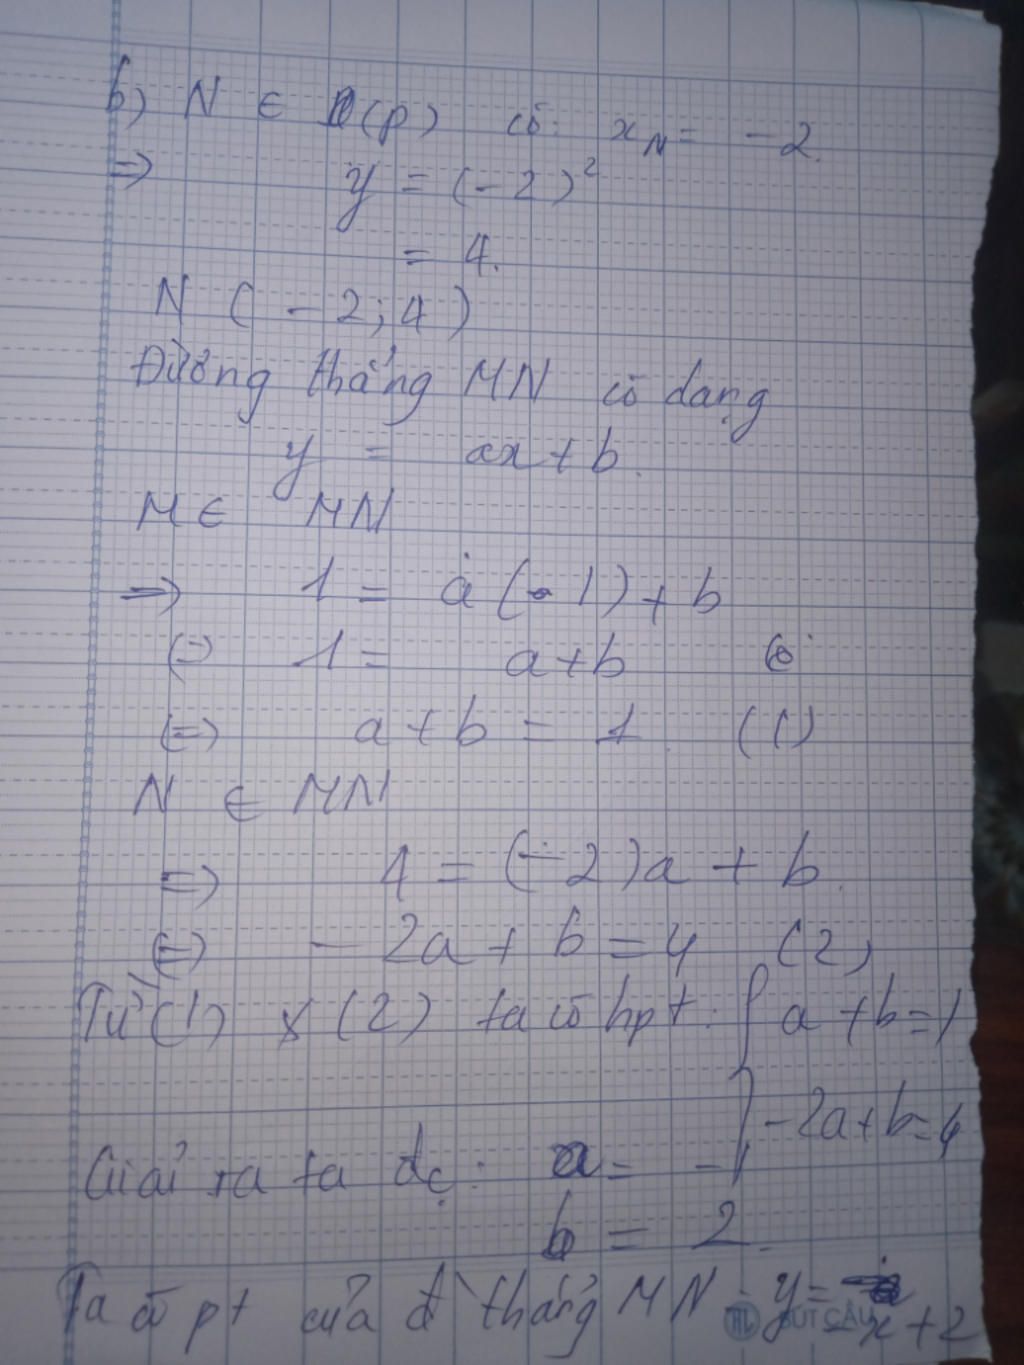 b) N ∈ (p) có: x_N = -2.
⇒ y = (-2)²
= 4.
N (-2; 4)
Đường thẳng MN có dạng
y = ax + b.
M ∈ MN
⇒ 1 = a(-1) + b
⇔ 1 = a + b
⇔ a + b = 1. (1)
N ∈ MN
⇒ 4 = (-2)a + b.
⇔ -2a + b = 4 (2)
Từ (1) & (2) ta có hpt: { a + b = 1
-2a + b = 4
Giải ra ta đc: a = -1
b = 2.
Ta có pt của đ thẳng MN: y = -x + 2